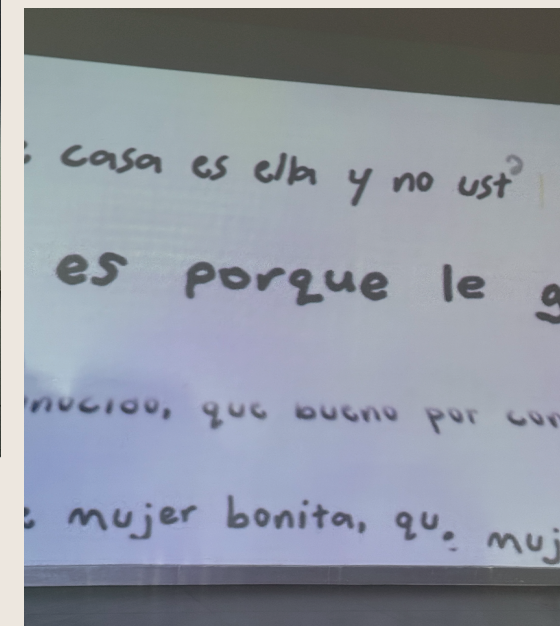 casa es ella y no ust
es porque le
que bueno por
mujer bonita, que